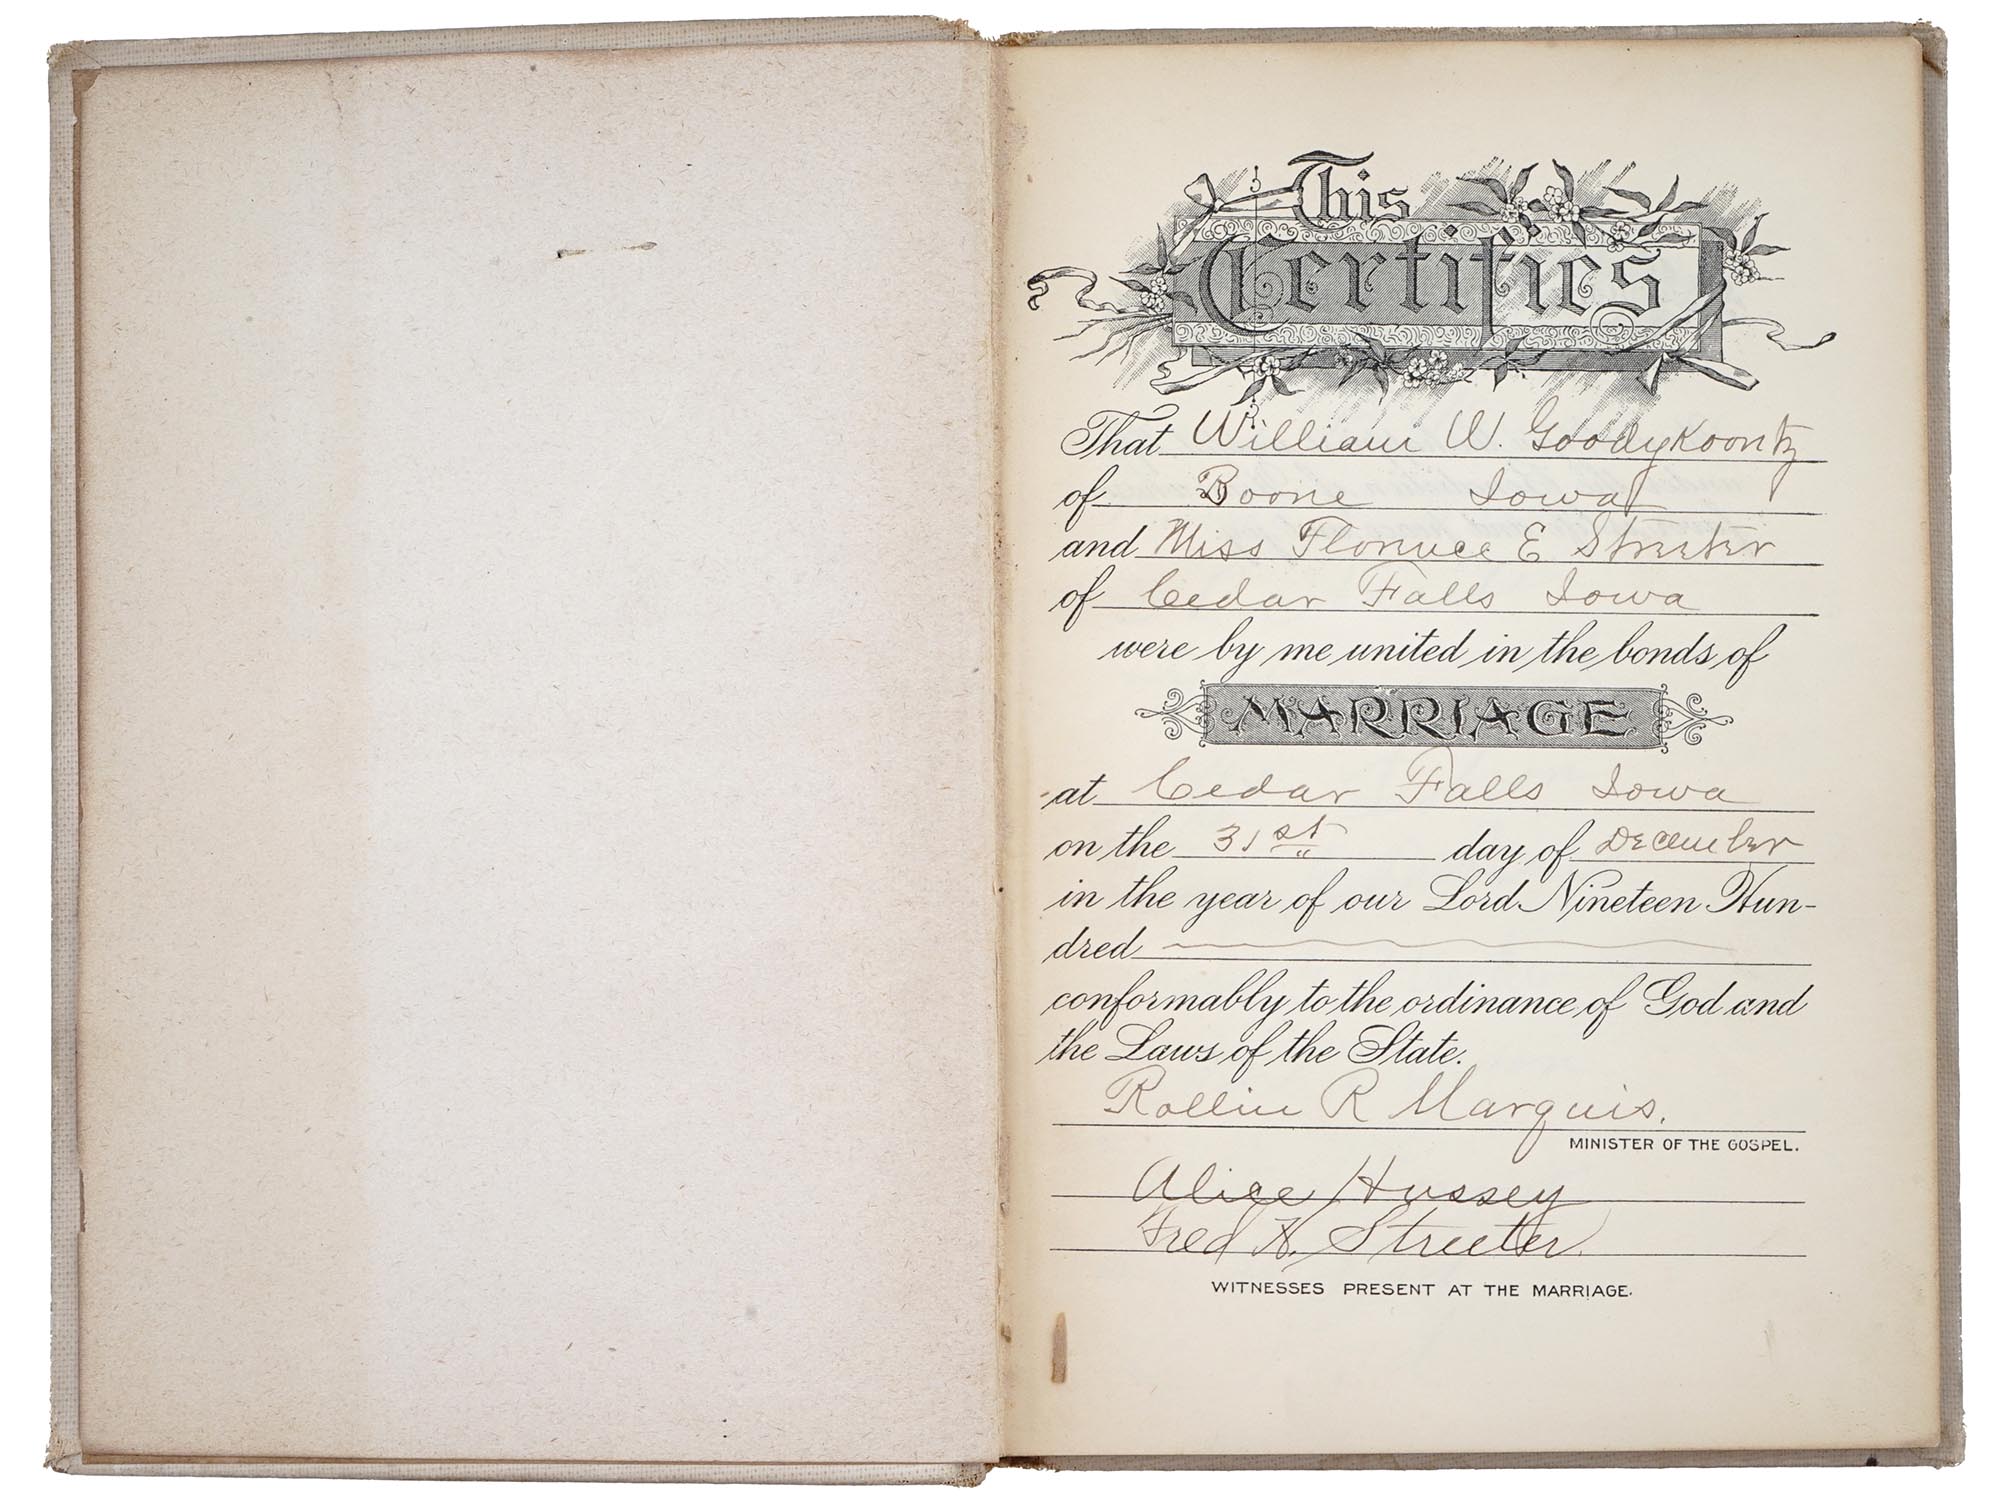 This
Certifies
That William W. Goodykoontz
of Boone Iowa
and Miss Florence E Streeter
of Cedar Falls Iowa
were by me united in the bonds of
MARRIAGE
at Cedar Falls Iowa
on the 31st day of December
in the year of our Lord Nineteen Hun-
dred
conformably to the ordinance of God and
the Laws of the State.
Rollin R Marquis.
MINISTER OF THE GOSPEL.
Alice Hussey
Fred H. Streeter.
WITNESSES PRESENT AT THE MARRIAGE.